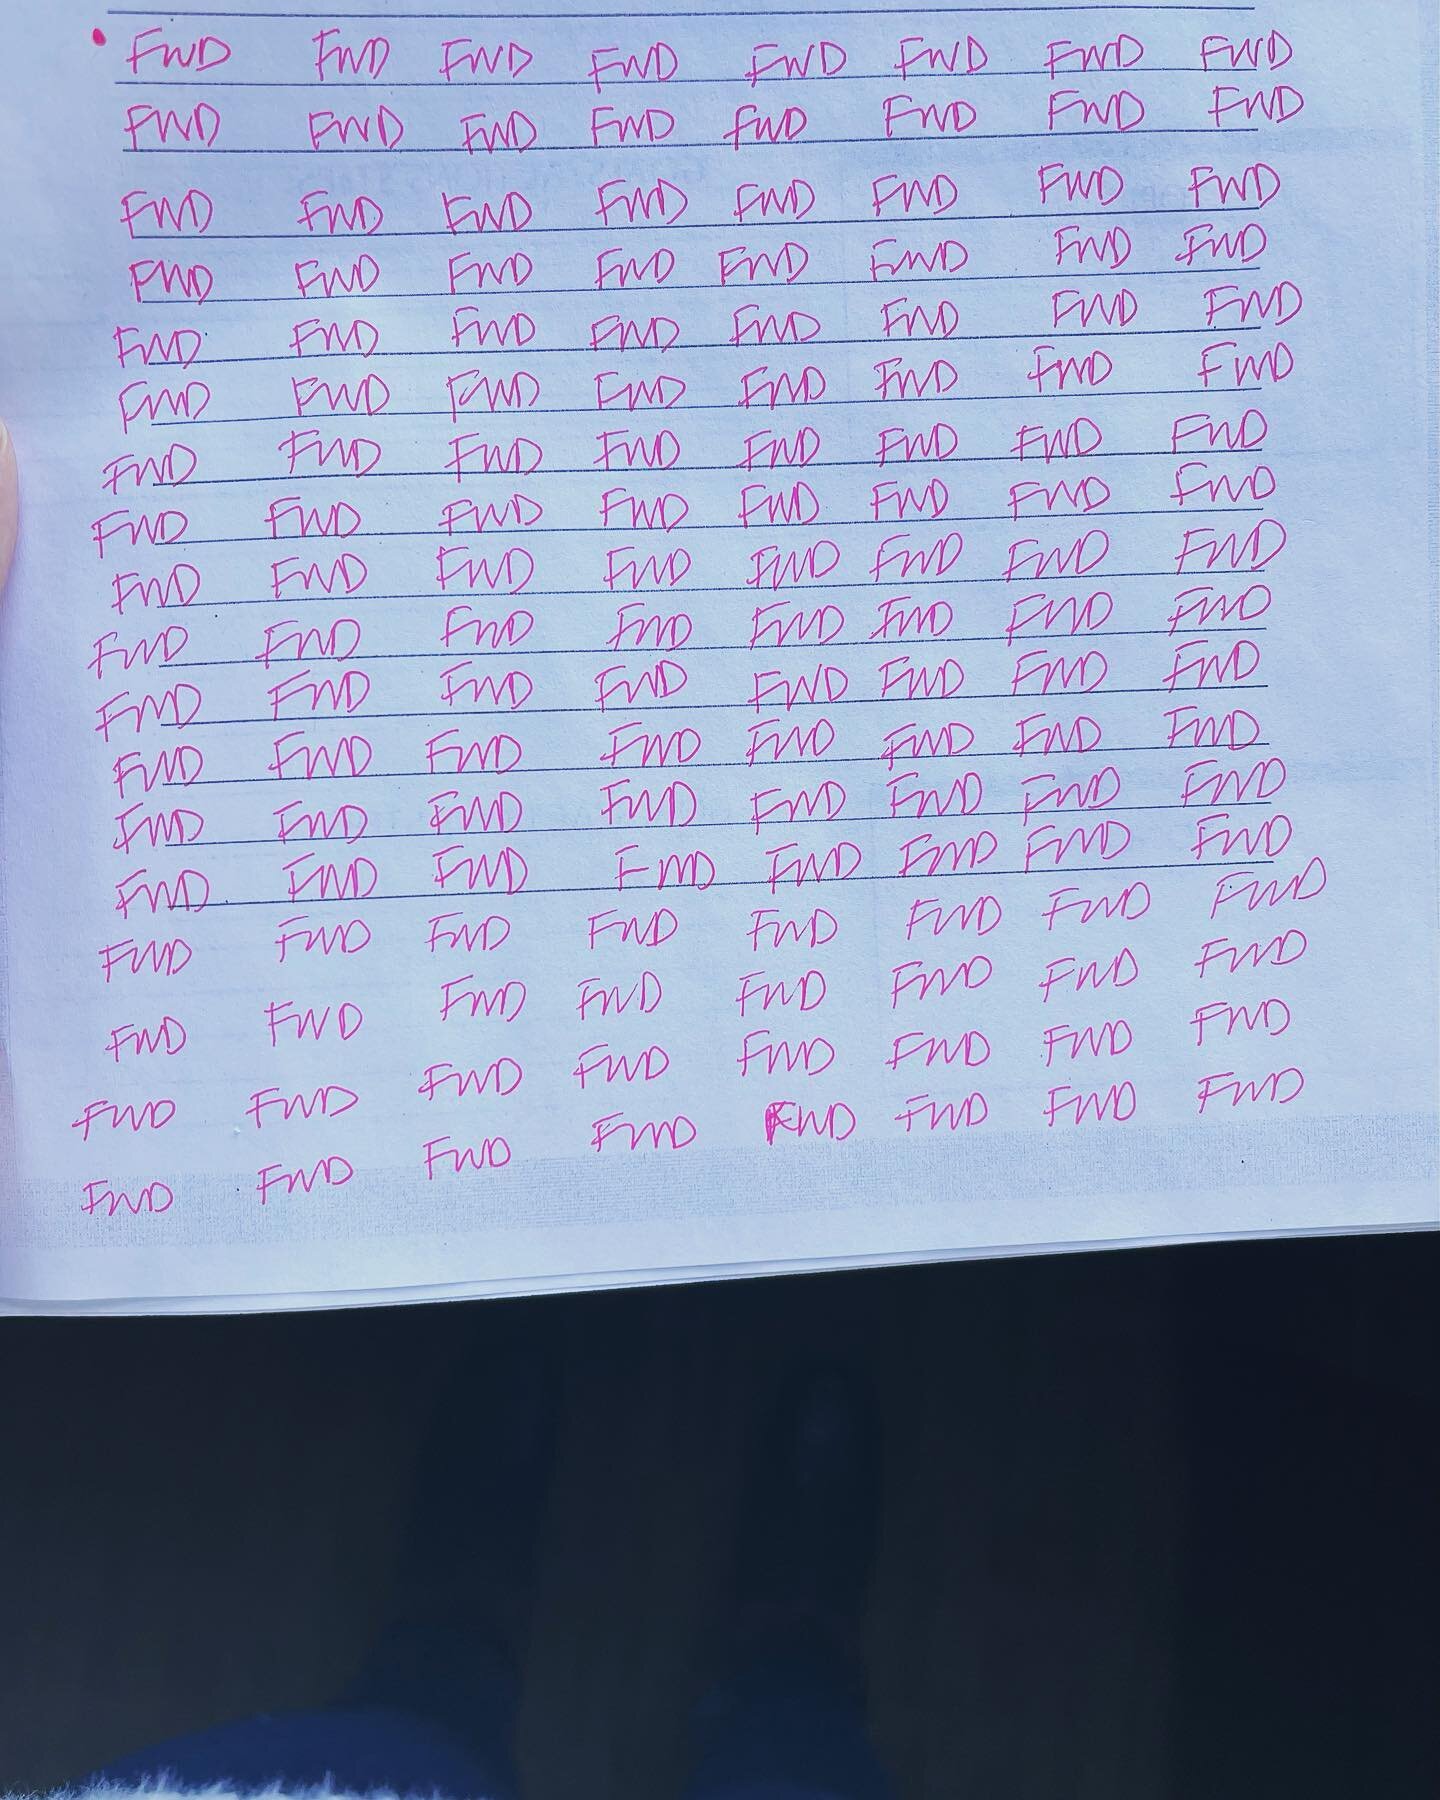 FWD FWD FWD FWD FWD FWD FWD FWD
FWD FWD FWD FWD FWD FWD FWD FWD
FWD FWD FWD FWD FWD FWD FWD FWD
FWD FWD FWD FWD FWD FWD FWD FWD
FWD FWD FWD FWD FWD FWD FWD FWD
FWD FWD FWD FWD FWD FWD FWD FWD
FWD FWD FWD FWD FWD FWD FWD FWD
FWD FWD FWD FWD FWD FWD FWD FWD
FWD FWD FWD FWD FWD FWD FWD FWD
FWD FWD FWD FWD FWD FWD FWD FWD
FWD FWD FWD FWD FWD FWD FWD FWD
FWD FWD FWD FWD FWD FWD FWD FWD
FWD FWD FWD FWD FWD FWD FWD FWD
FWD FWD FWD FWD FWD FWD FWD FWD
FWD FWD FWD FWD FWD FWD FWD FWD
FWD FWD FWD FWD FWD FWD FWD FWD
FWD FWD FWD FWD FWD FWD FWD FWD
FWD FWD FWD FWD FWD FWD FWD FWD